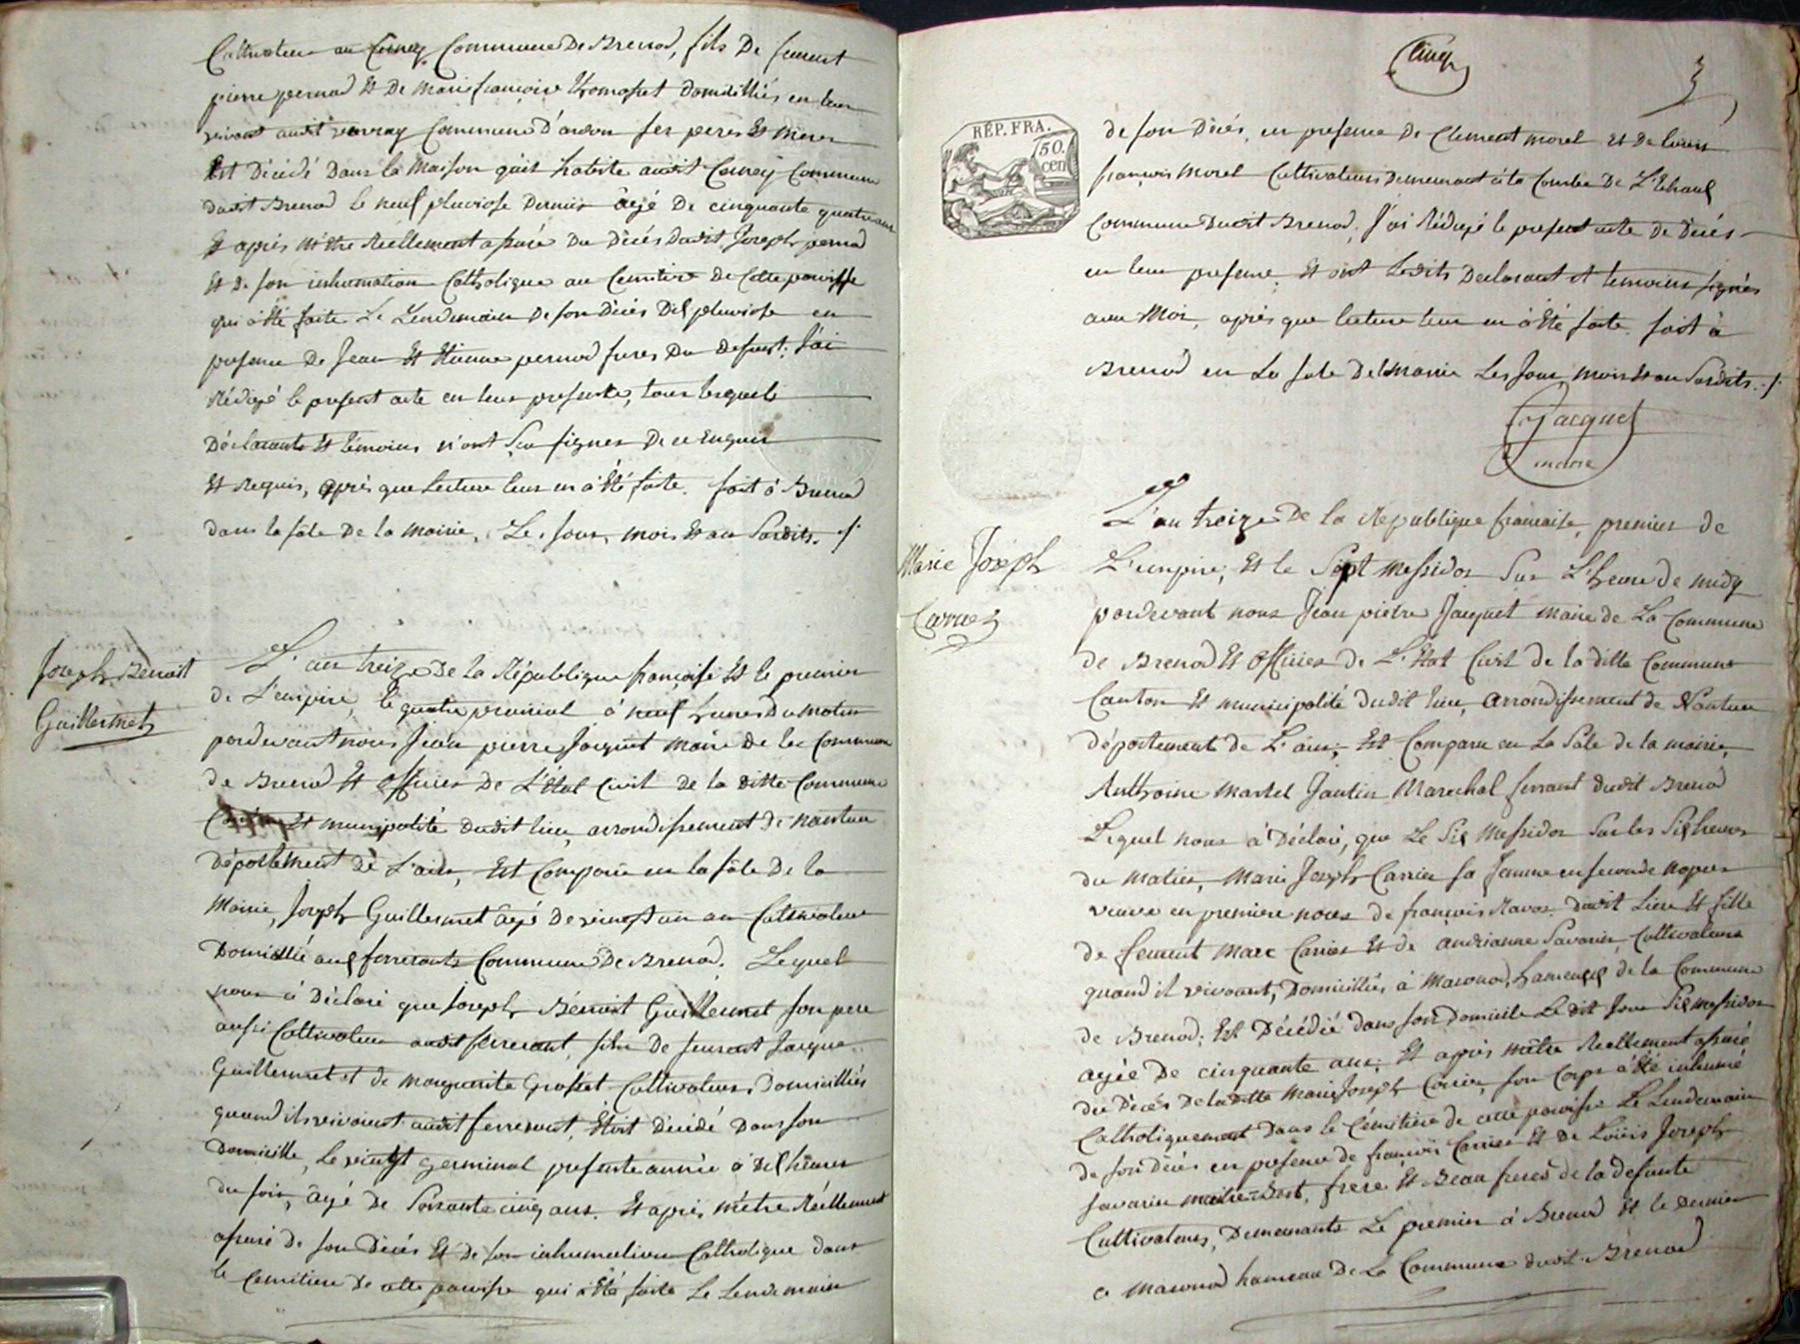 Cultivateur au Cerney Commune De Brenod, fils De feu
pierre pernod Et De Marie françoise thomasset domicilliés en leur
vivant audit Commune d'ses peres Et meres
Est Décédé Dans la Maison qu'il habite audit Cerney Commune
dudit Brenod le neuf pluviose Dernier âgé De cinquante quatre ans
Et après m'être Réellement assuré Du Décés Dudit Joseph pernod
Et De son inhumation Catholique au Cemitire De Cette paroisse
qui a Eté faite Le Lendemain De son Décés Dix pluviose en
presence De Jean Et Etienne pernod freres Du Defunt; J'ai
Rédigé le present acte en leur presence, tous lesquels
Déclarants Et témoins n'ont Scu signer De ce Enquis
Et Requis, après que Lecture leur en a Eté faite. fait à Brenod
dans la sâle De la Mairie, Les Jour, mois Et an Susdits. ./.
Joseph Benoit
Guillermet
L'an treize De la République françoise Et le premier
de L'empire, le quatre prairial à neuf heures Du Matin
pardevant nous Jean pierre Jacquet Maire De la Commune
de Brenod Et officier De L'état Civil De la ditte Commune
Canton Et municipalité dudit lieu, arrondissement De nantua
département De L'ain, Est Comparu en la sâle De la
Mairie, Joseph Guillermet âgé De vingt un an Cultivateur
Domicillié aux ferrerants Commune De Brenod. Lequel
nous a Déclaré que Joseph Benoit Guillermet son pere
aussi Cultivateur audit ferrerant, fils De feu Jacque
Guillermet Et de marguerite Grosset Cultivateurs Domicilliés
quand ils vivoient audit ferrerant, Etoit Décédé Dans son
Domicille, Le vingt germinal presente année à Dix heures
du soir, âgé De Soixante cinq ans. Et après m'être Réellement
assuré De son Décés Et De son inhumation Catholique dans
le Cemitiere De cette paroisse qui a Eté faite Le Lendemain
Cinq
3
RÉP. FRA.
50.
cen
de son Décés, en presence De Clement morel Et De Louis
françois Morel Cultivateurs Demeurant à la Combe De L'
Commune Dudit Brenod, J'ai Rédigé le present acte De Décés
en leur presence, Et ont Lesdits Declarant et temoins signés
avec Moi, après que lecture leur en a Eté faite. fait à
Brenod en La Sale De la Mairie Les Jour Mois Et an Susdits. ./.
Jacquet
maire
Marie Joseph
Carrier
L'an treize De la République francaise, premier de
L'empire, Et le Sept Messidor Sur L'heure de midy
pardevant nous Jean pierre Jacquet maire de La Commune
de Brenod Et officier de L'Etat Civil de la ditte Commune
Canton Et municipalité dudit lieu, arrondissement de Nantua
département de L'ain, Est Comparu en La Sale de la mairie,
Anthoine Martel Jantin Marechal ferrant dudit Brenod
Lequel nous a Déclaré, que Le Six Messidor Sur les Six heures
du matin, Marie Joseph Carrier sa femme en seconde nopces
veuve en premiere noces de françois Ravoz dudit Lieu Et fille
de feu Marc Carrier Et de Andrianne Savarin, Cultivateurs
quand il vivoient, Domicilliés à Macconod, hameaux de la Commune
de Brenod, Est Décédée dans son Domicile Le dit Jour Six messidor
agée De cinquante ans; Et après m'être Réellement assuré
du Décés De la ditte Marie Joseph Carrier, son Corps a Eté inhumé
Catholiquement Dans le Cémitiere de cette paroisse Le Lendemain
de son Décés en presence de francois Carrier Et de Louis Joseph
Savarin frere Et Beau frere de la defunte
Cultivateurs, Demeurants Le premier à Brenod Et le dernier
a Macconod hameau De La Commune dudit Brenod